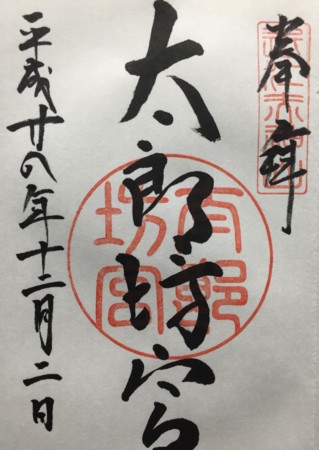 奉拝
太郎坊宮
太郎
坊宮
平成廿八年十二月二日